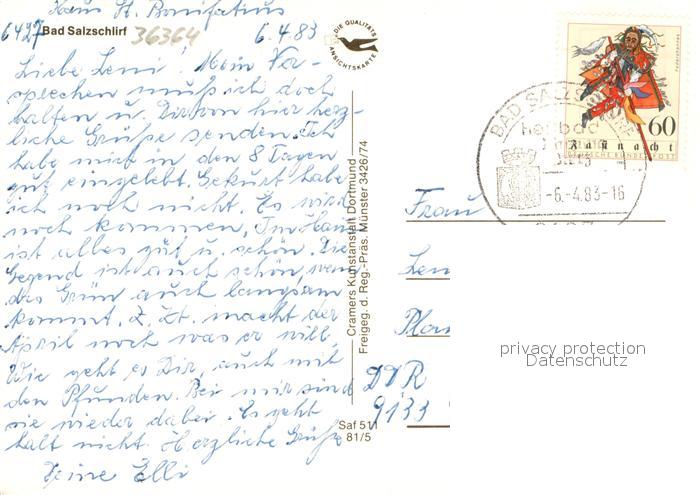 Haus St. Bonifatius
6427 Bad Salzschlirf 36364 6.4.83
Liebe Leni! Mein Ver-
sprechen muß ich doch
halten u. Dir von hier herz-
liche Grüße senden. Ich
habe mich in den 8 Tagen
gut eingelebt. Gekurt habe
ich noch nicht. Es wird
noch kommen, Im Haus
ist alles gut u. schön. Die
Gegend ist auch schön, wenn
das Grün auch langsam
kommt. Z. Zt. macht der
April noch was er will.
Wie geht es Dir, auch mit
den Pfunden. Bei mir sind
sie wieder dabei. Es geht
halt nicht. Herzliche Grüße
Deine Elli
DIE QUALITÄTS
ANSICHTSKARTE
Cramers Kunstanstalt Dortmund
Freigeg. d. Reg.-Präs. Münster 3426/74
Saf 511
81/5
60
Fastnacht
DEUTSCHE BUNDESPOST
BAD SALZS
Heilbad
-6.-4.83-16
Frau
Len
DDR
9133
privacy protection
Datenschutz